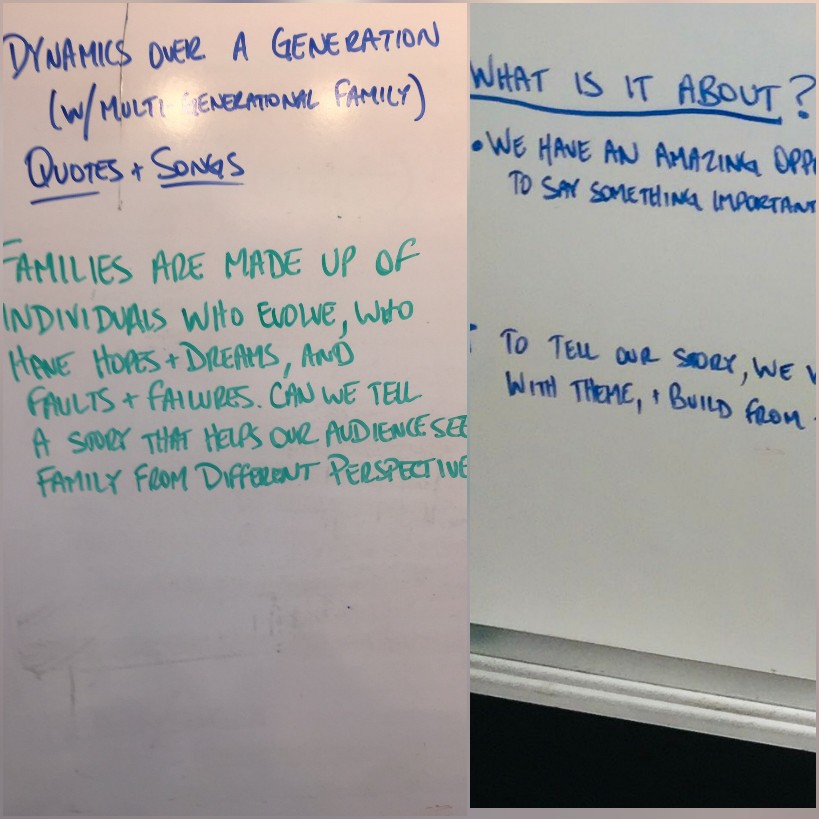 DYNAMICS OVER A GENERATION
(W/ MULTI GENERATIONAL FAMILY)
QUOTES + SONGS
FAMILIES ARE MADE UP OF
INDIVIDUALS WHO EVOLVE, WHO
HAVE HOPES + DREAMS, AND
FAULTS + FAILURES. CAN WE TELL
A STORY THAT HELPS OUR AUDIENCE SEE
FAMILY FROM DIFFERENT PERSPECTIVE
WHAT IS IT ABOUT?
• WE HAVE AN AMAZING
TO SAY SOMETHING IMPORTANT
TO TELL OUR STORY, WE
WITH THEME, + BUILD FROM